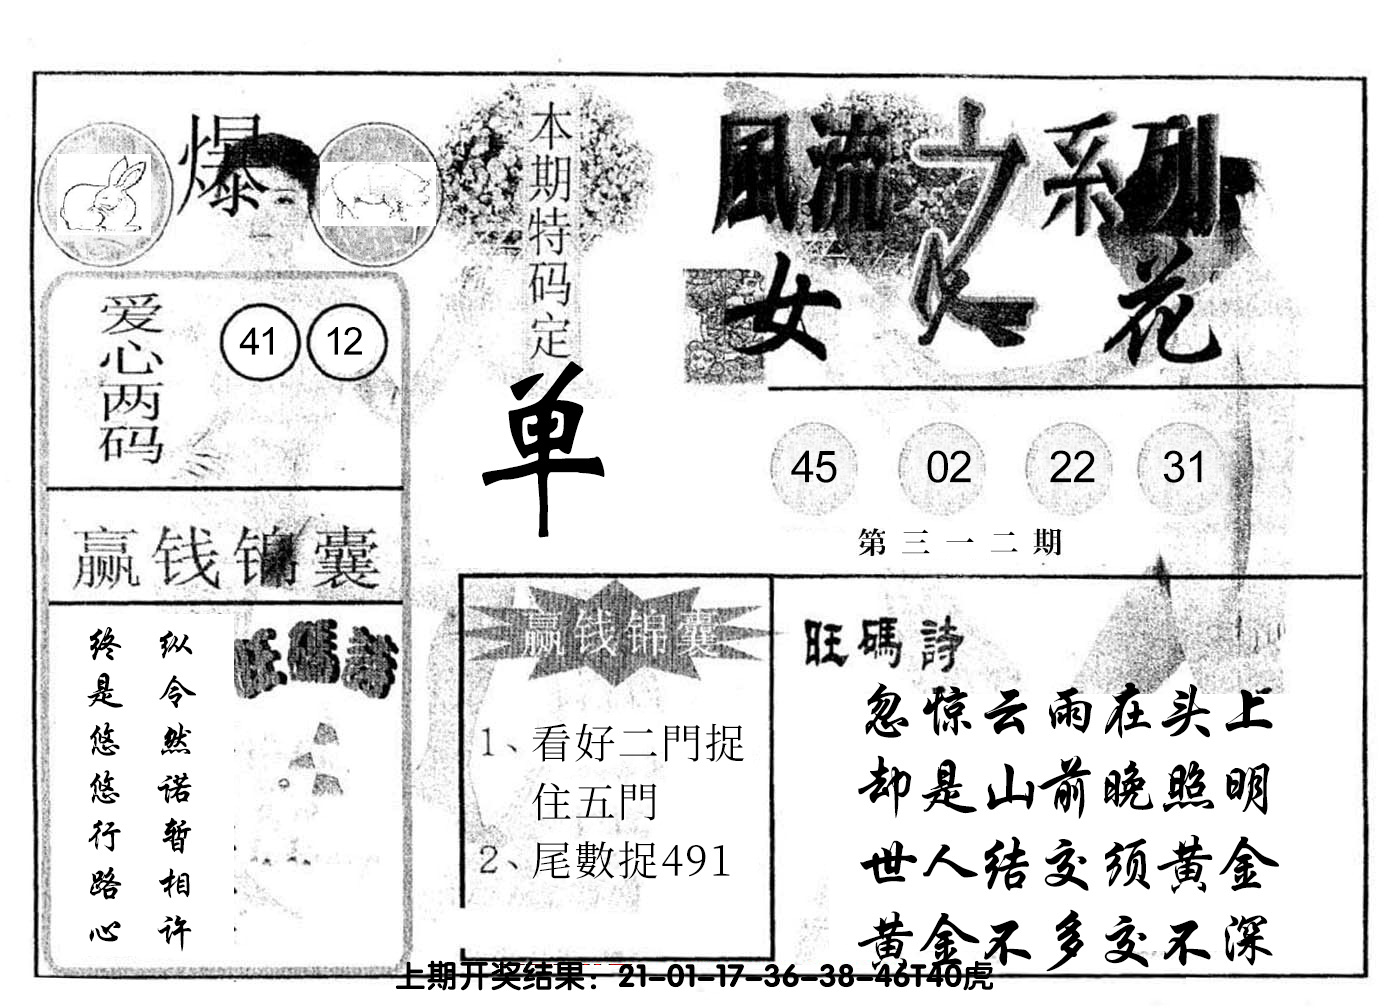 爆
爱心两码
41 12
赢钱锦囊
纵令然诺暂相许
终是悠悠行路心
旺碼詩
本期特码定
单
風流之系列
女人花
45 02 22 31
第三一二期
赢钱锦囊
1、看好二門捉
住五門
2、尾數捉491
旺碼詩
忽惊云雨在头上
却是山前晚照明
世人结交须黄金
黄金不多交不深
上期开奖结果：21-01-17-36-38-46T40虎